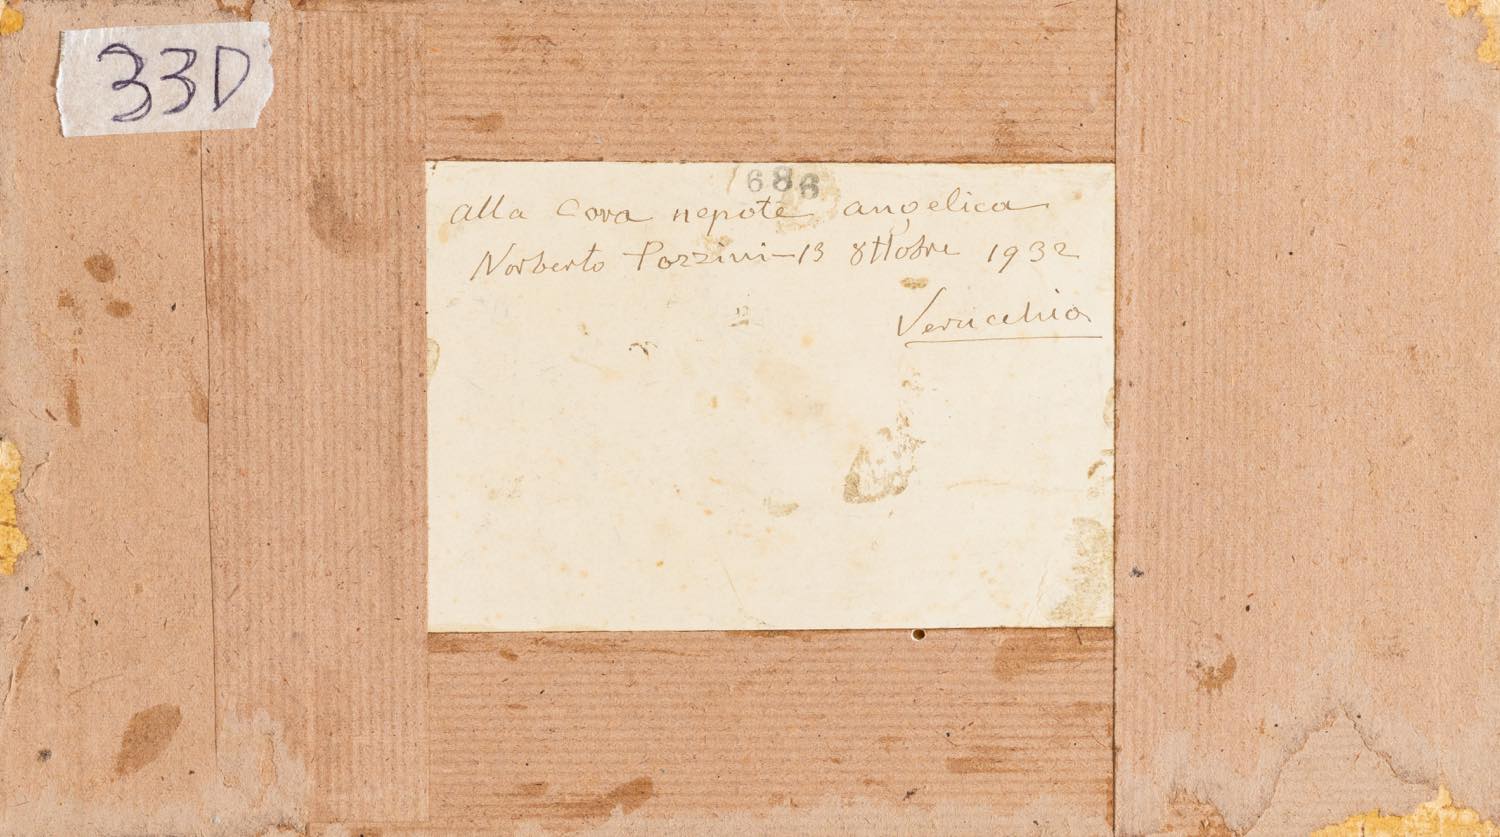 33D
686
alla Cora nepote angelica
Norberto Pazzini - 13 8ttobre 1932
Verucchio